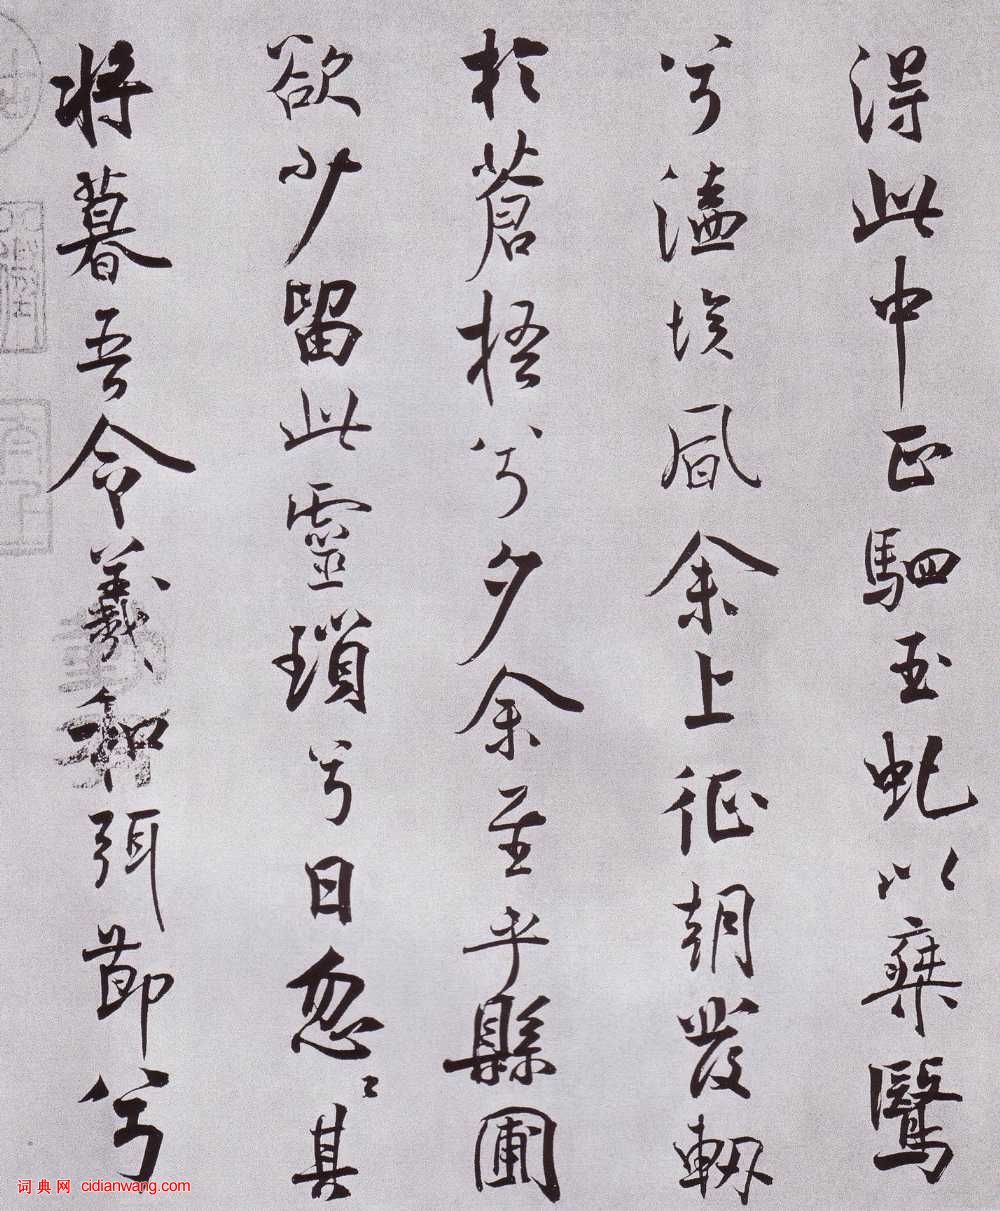 得此中正駟玉虬以椉鷖
兮溘埃風余上征朝發軔
於蒼梧兮夕余至乎縣圃
欲少留此靈瑣兮日忽〻其
將暮吾令羲和弭節兮
词典网 cidianwang.com